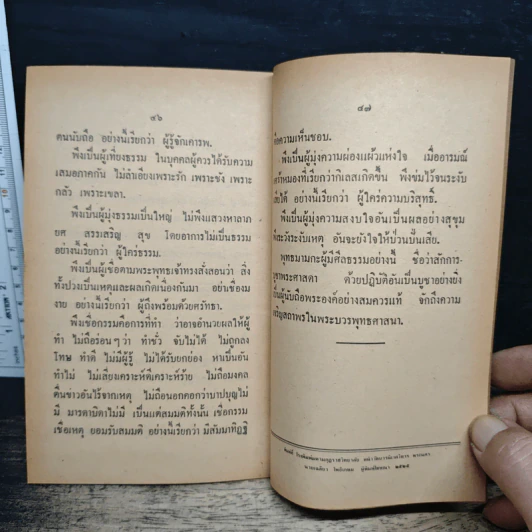 ๔๖
ตนนับถือ อย่างนี้เรียกว่า ผู้รู้จักเคารพ.
พึงเป็นผู้เที่ยงธรรม ในบุคคลผู้ควรได้รับความ
เสมอภาคกัน ไม่ลำเอียงเพราะรัก เพราะชัง เพราะ
กลัว เพราะเขลา.
พึงเป็นผู้มุ่งธรรมเป็นใหญ่ ไม่พึงแสวงหาลาภ
ยศ สรรเสริญ สุข โดยอาการไม่เป็นธรรม
อย่างนี้เรียกว่า ผู้ใคร่ธรรม.
พึงเป็นผู้เชื่อตามพระพุทธเจ้าทรงสั่งสอนว่า สิ่ง
ทั้งปวงเป็นเหตุและผลเกิดเนื่องกันมา อย่าเชื่องม
งาย อย่างนี้เรียกว่า ผู้ถึงพร้อมด้วยศรัทธา.
พึงเชื่อกรรมคือการที่ทำ ว่าอาจอำนวยผลให้ผู้
ทำ ไม่ถือร่อนๆว่า ทำชั่ว จับไม่ได้ ไม่ถูกลง
โทษ ทำดี ไม่มีผู้รู้ ไม่ได้รับยกย่อง หาเป็นอัน
ทำไม่ ไม่เสี่ยงเคราะห์ดีเคราะห์ร้าย ไม่ถือมงคล
ตื่นข่าวอันไร้จากเหตุ ไม่ถือนอกคอกว่าบาปบุญไม่
มี มารดาบิดาไม่มี เป็นแต่สมมติทั้งนั้น เชื่อกรรม
เชื่อเหตุ ยอมรับสมมติ อย่างนี้เรียกว่า มีสัมมาทิฏฐิ
๔๗
ความเห็นชอบ.
พึงเป็นผู้มุ่งความผ่องแผ้วแห่งใจ เมื่ออารมณ์
เศร้าหมองที่เรียกว่ากิเลสเกิดขึ้น พึงข่มไว้จนระงับ
ได้ อย่างนี้เรียกว่า ผู้ใคร่ความบริสุทธิ์.
พึงเป็นผู้มุ่งความสงบใจอันเป็นผลอย่างสุขุม
ระวังระงับเหตุ อันจะยังใจให้ป่วนปั่นเสีย.
พุทธมามกะผู้มีศีลธรรมอย่างนี้ ชื่อว่าสักการ-
บูชาพระศาสดา ด้วยปฏิบัติอันเป็นบูชาอย่างยิ่ง
เป็นผู้นับถือพระองค์อย่างสมควรแท้ จักถึงความ
เจริญสถาพรในพระบวรพุทธศาสนา.